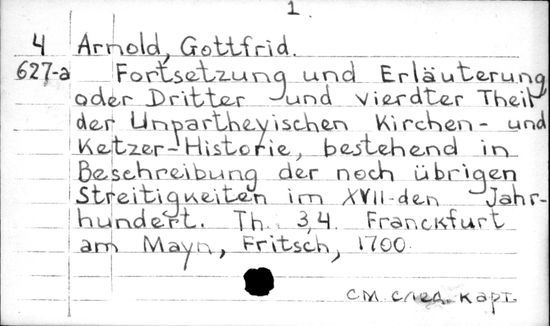 1.
4 Arnold, Gottfrid.
627-a Fortsetzung und Erläuterung
oder Dritter und vierdter Theil
der Unpartheyischen Kirchen- und
Ketzer-Historie, bestehend in
Beschreibung der noch übrigen
Streitigkeiten im XVII-den Jahr-
hundert. Th. 3,4. Franckfurt
am Mayn, Fritsch, 1700.
см след. карт.